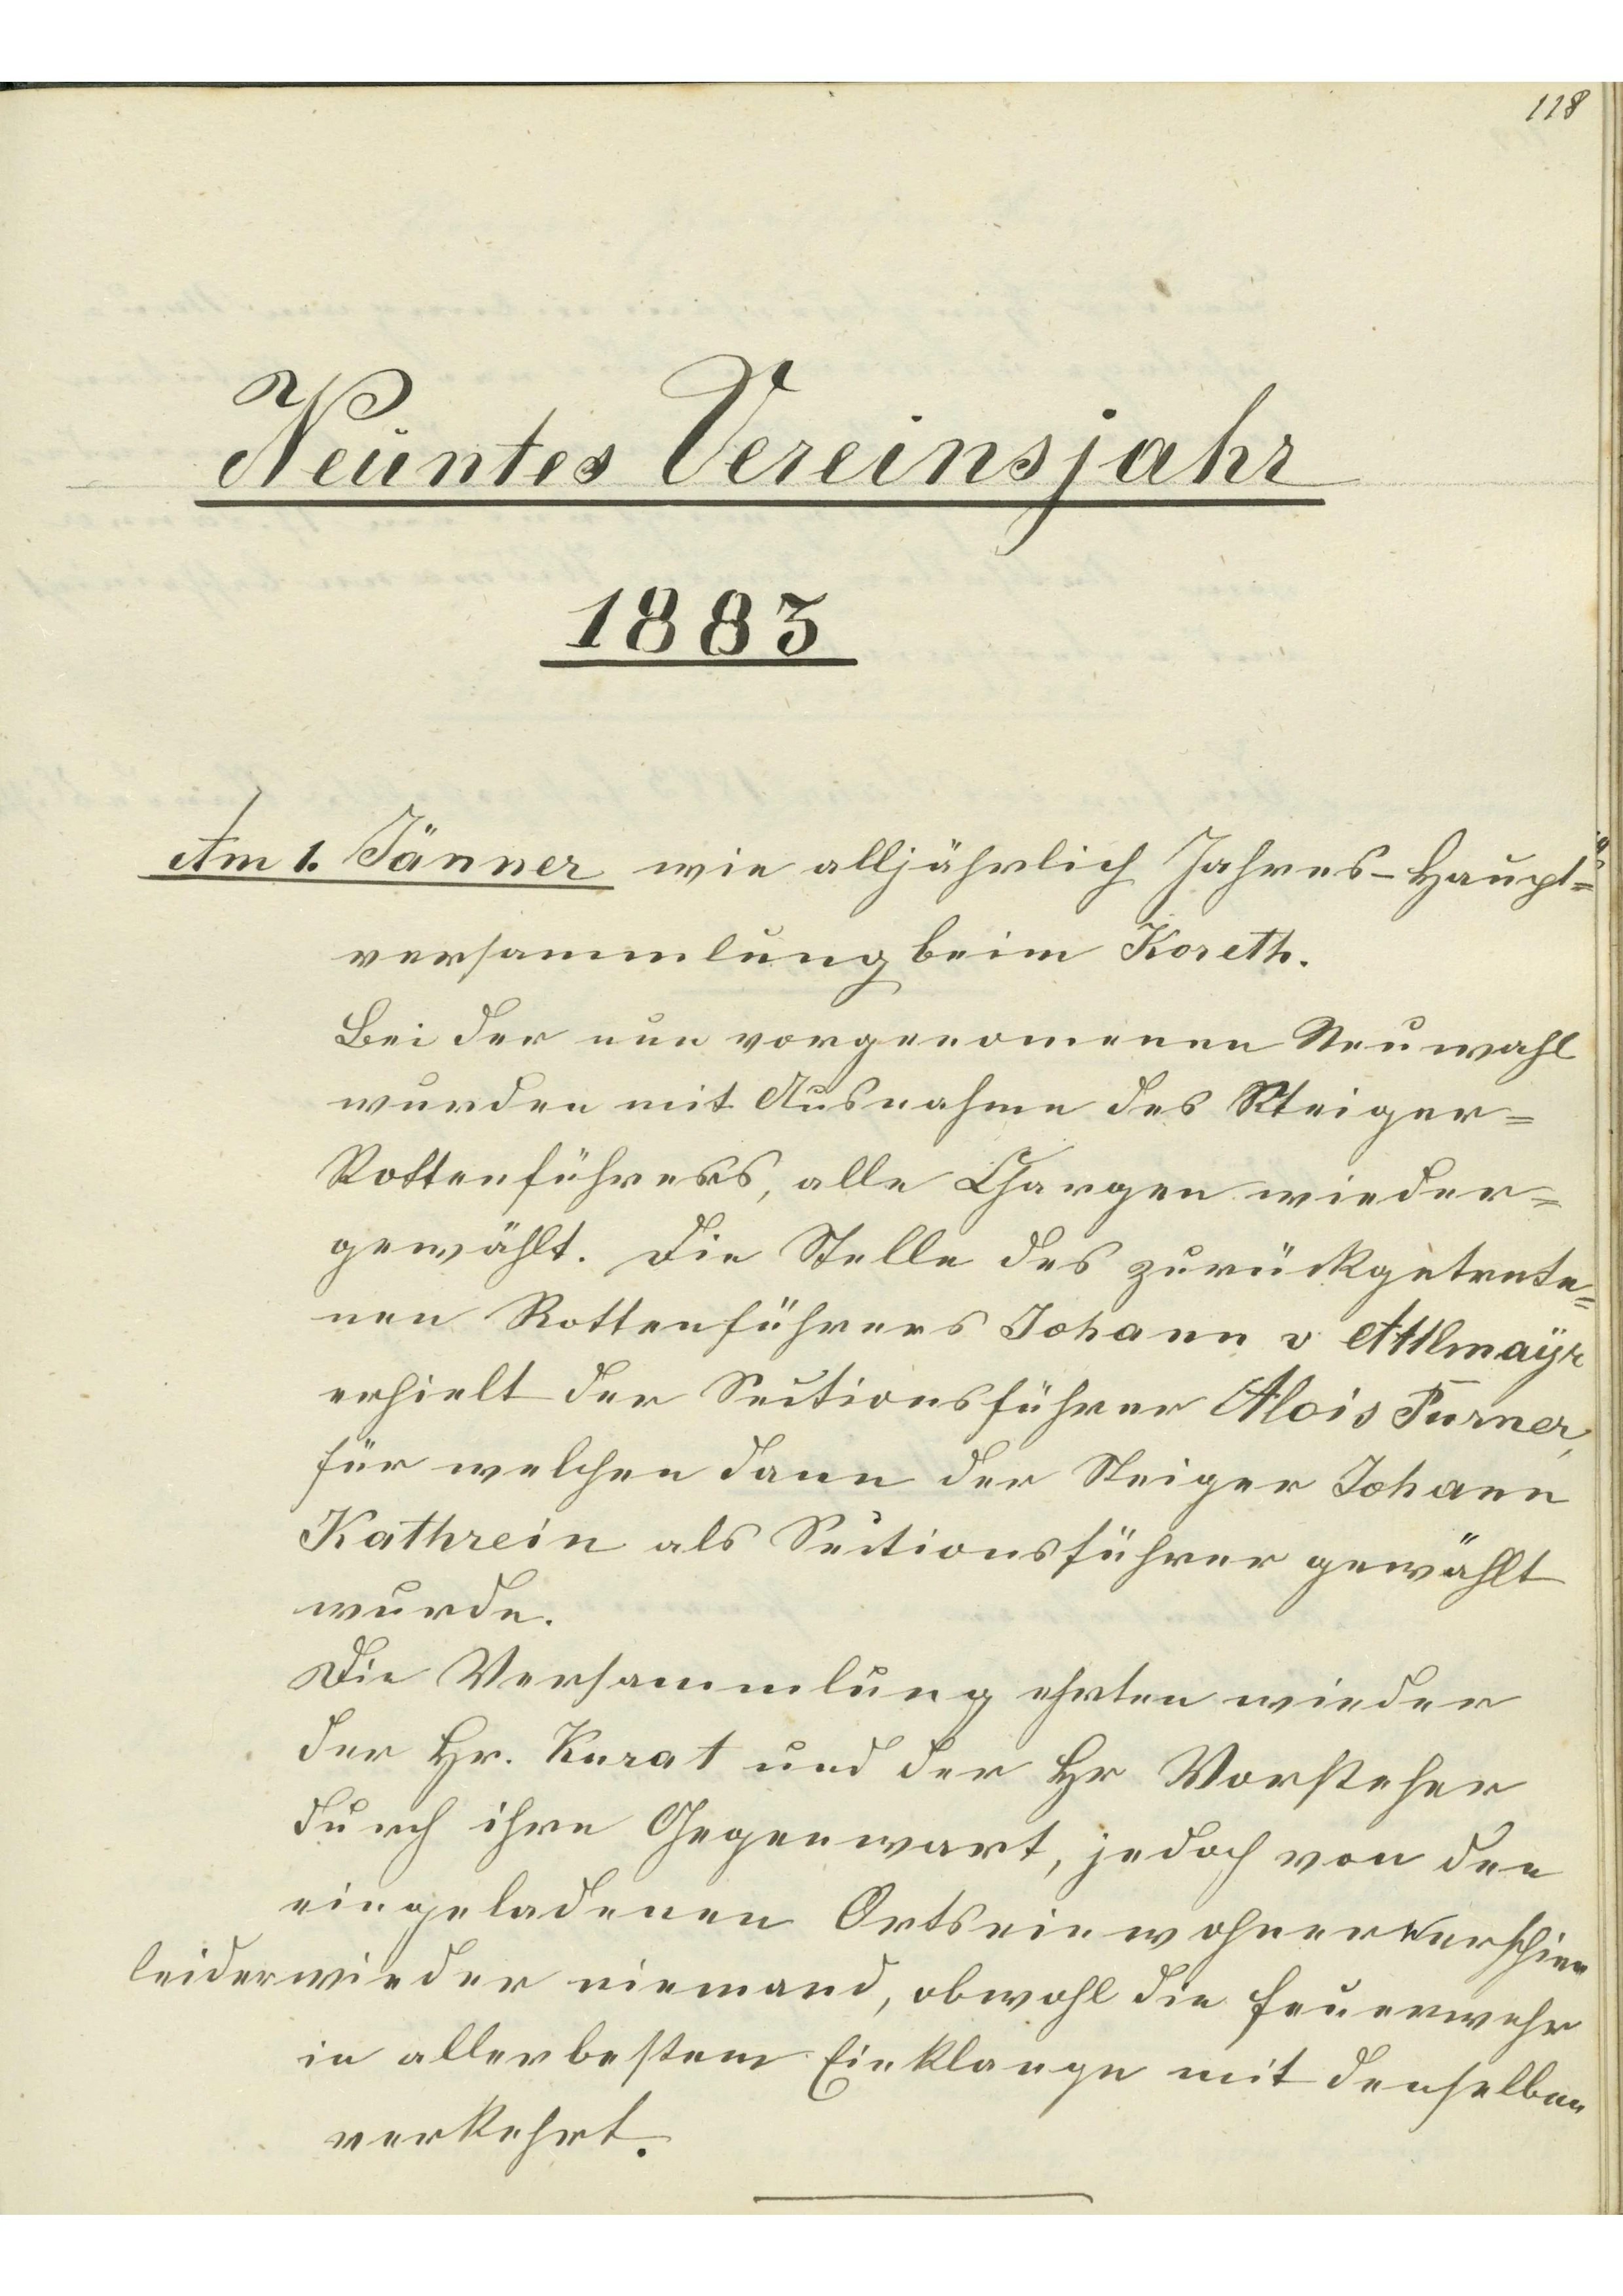 118
Neuntes Vereinsjahr
1883
Am 1. Jänner wie alljährlich Jahres-Haupt=
versammlung beim Koreth.
Bei der nun vorgenomenen Neuwahl
wurden mit Ausnahme des Steiger=
Rottenführers, alle Chargen wieder=
gewählt. Die Stelle des zurückgetrete=
nen Rottenführers Johann v Attlmaÿr
erhielt der Sectionsführer Alois Purner,
für welchen dann der Steiger Johann
Kathrein als Sectionsführer gewählt
wurde.
Die Versammlung ehrten wieder
der Hr. Kurat und der Hr Vorsteher
durch ihre Gegenwart, jedoch von den
eingeladenen Ortseinwohnern erschien
leider wieder niemand, obwohl die Feuerwehr
in allerbestem Einklange mit denselben
verkehrt.